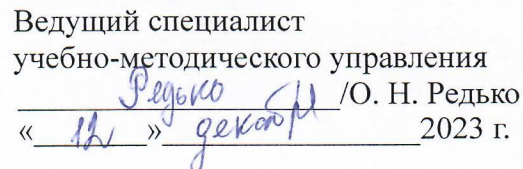 Ведущий специалист
учебно-методического управления
Редько /О. Н. Редько
«12» декабря 2023 г.